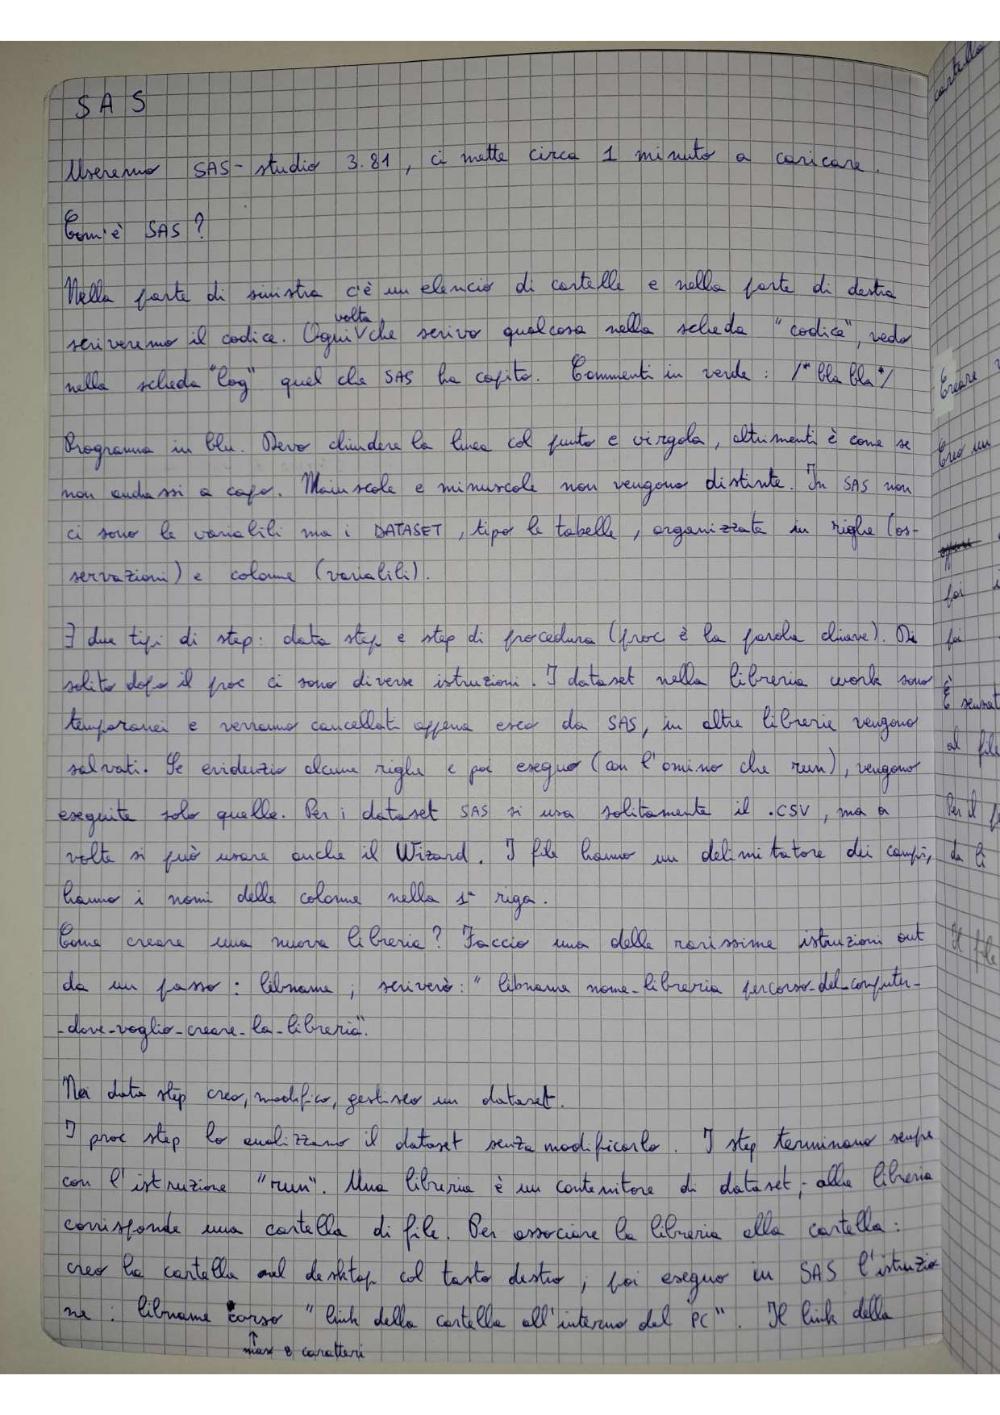 SAS
Useremo SAS-studio 3.81, ci mette circa 1 minuto a caricare.
Com'è SAS?
Nella parte di sinistra c'è un elencio di cartelle e nella parte di destra
scriveremo il codice. Ogni volta che scrivo qualcosa nella scheda "codice", vedo
nella scheda "log" quel che SAS ha capito. Commenti in verde: /*bla bla*/
Programma in blu. Devo chiudere la linea col punto e virgola, altrimenti è come se
non andassi a capo. Maiuscole e minuscole non vengono distinte. In SAS non
ci sono le variabili ma i DATASET, tipo le tabelle, organizzata in righe (os-
servazioni) e colonne (variabili).
∃ due tipi di step: data step e step di procedura (proc è la parola chiave). Di
solito dopo il proc ci sono diverse istruzioni. I dataset nella libreria work sono
temporanei e verranno cancellati appena esco da SAS, in altre librerie vengono
salvati. Se evidenzio alcune righe e poi eseguo (con l'omino che run), vengono
eseguite solo quelle. Per i dataset SAS si usa solitamente il .CSV, ma a
volte si può usare anche il Wizard. I file hanno un delimitatore dei campi,
hanno i nomi delle colonne nella 1ª riga.
Come creare una nuova libreria? Faccio una delle rarissime istruzioni out
da un passo: libname; scriverò: "libname nome-libreria percorso-del-computer-
-dove-voglio-creare-la-libreria".
Nei data step creo, modifico, gestisco un dataset.
I proc step lo analizzano il dataset senza modificarlo. I step terminano sempre
con l'istruzione "run". Una libreria è un contenitore di dataset; alla libreria
corrisponde una cartella di file. Per associare la libreria alla cartella:
creo la cartella sul desktop col tasto destro, poi eseguo in SAS l'istruzio
ne: libname corso "link della cartella all'interno del PC". Il link della
max 8 caratteri
cartella
Creare
Creo un
poi
poi
È
al file
Per il
da lì
Il file